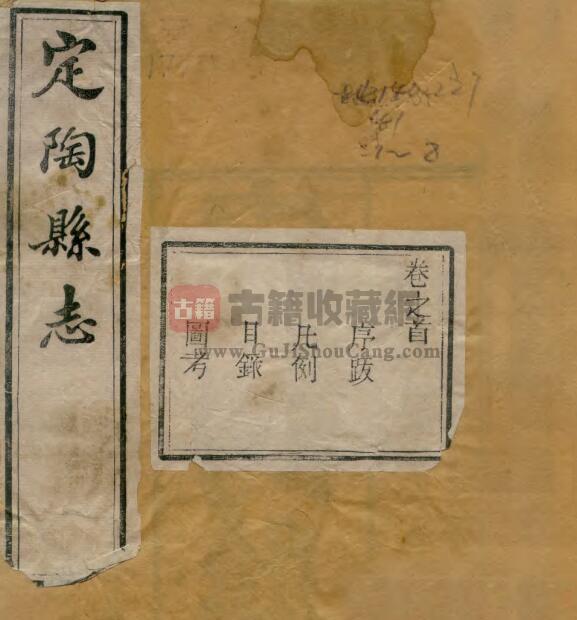 定陶縣志
卷之首
序跋
凡例
目錄
圖考
古籍
古籍收藏網
www.GuJiShouCang.com